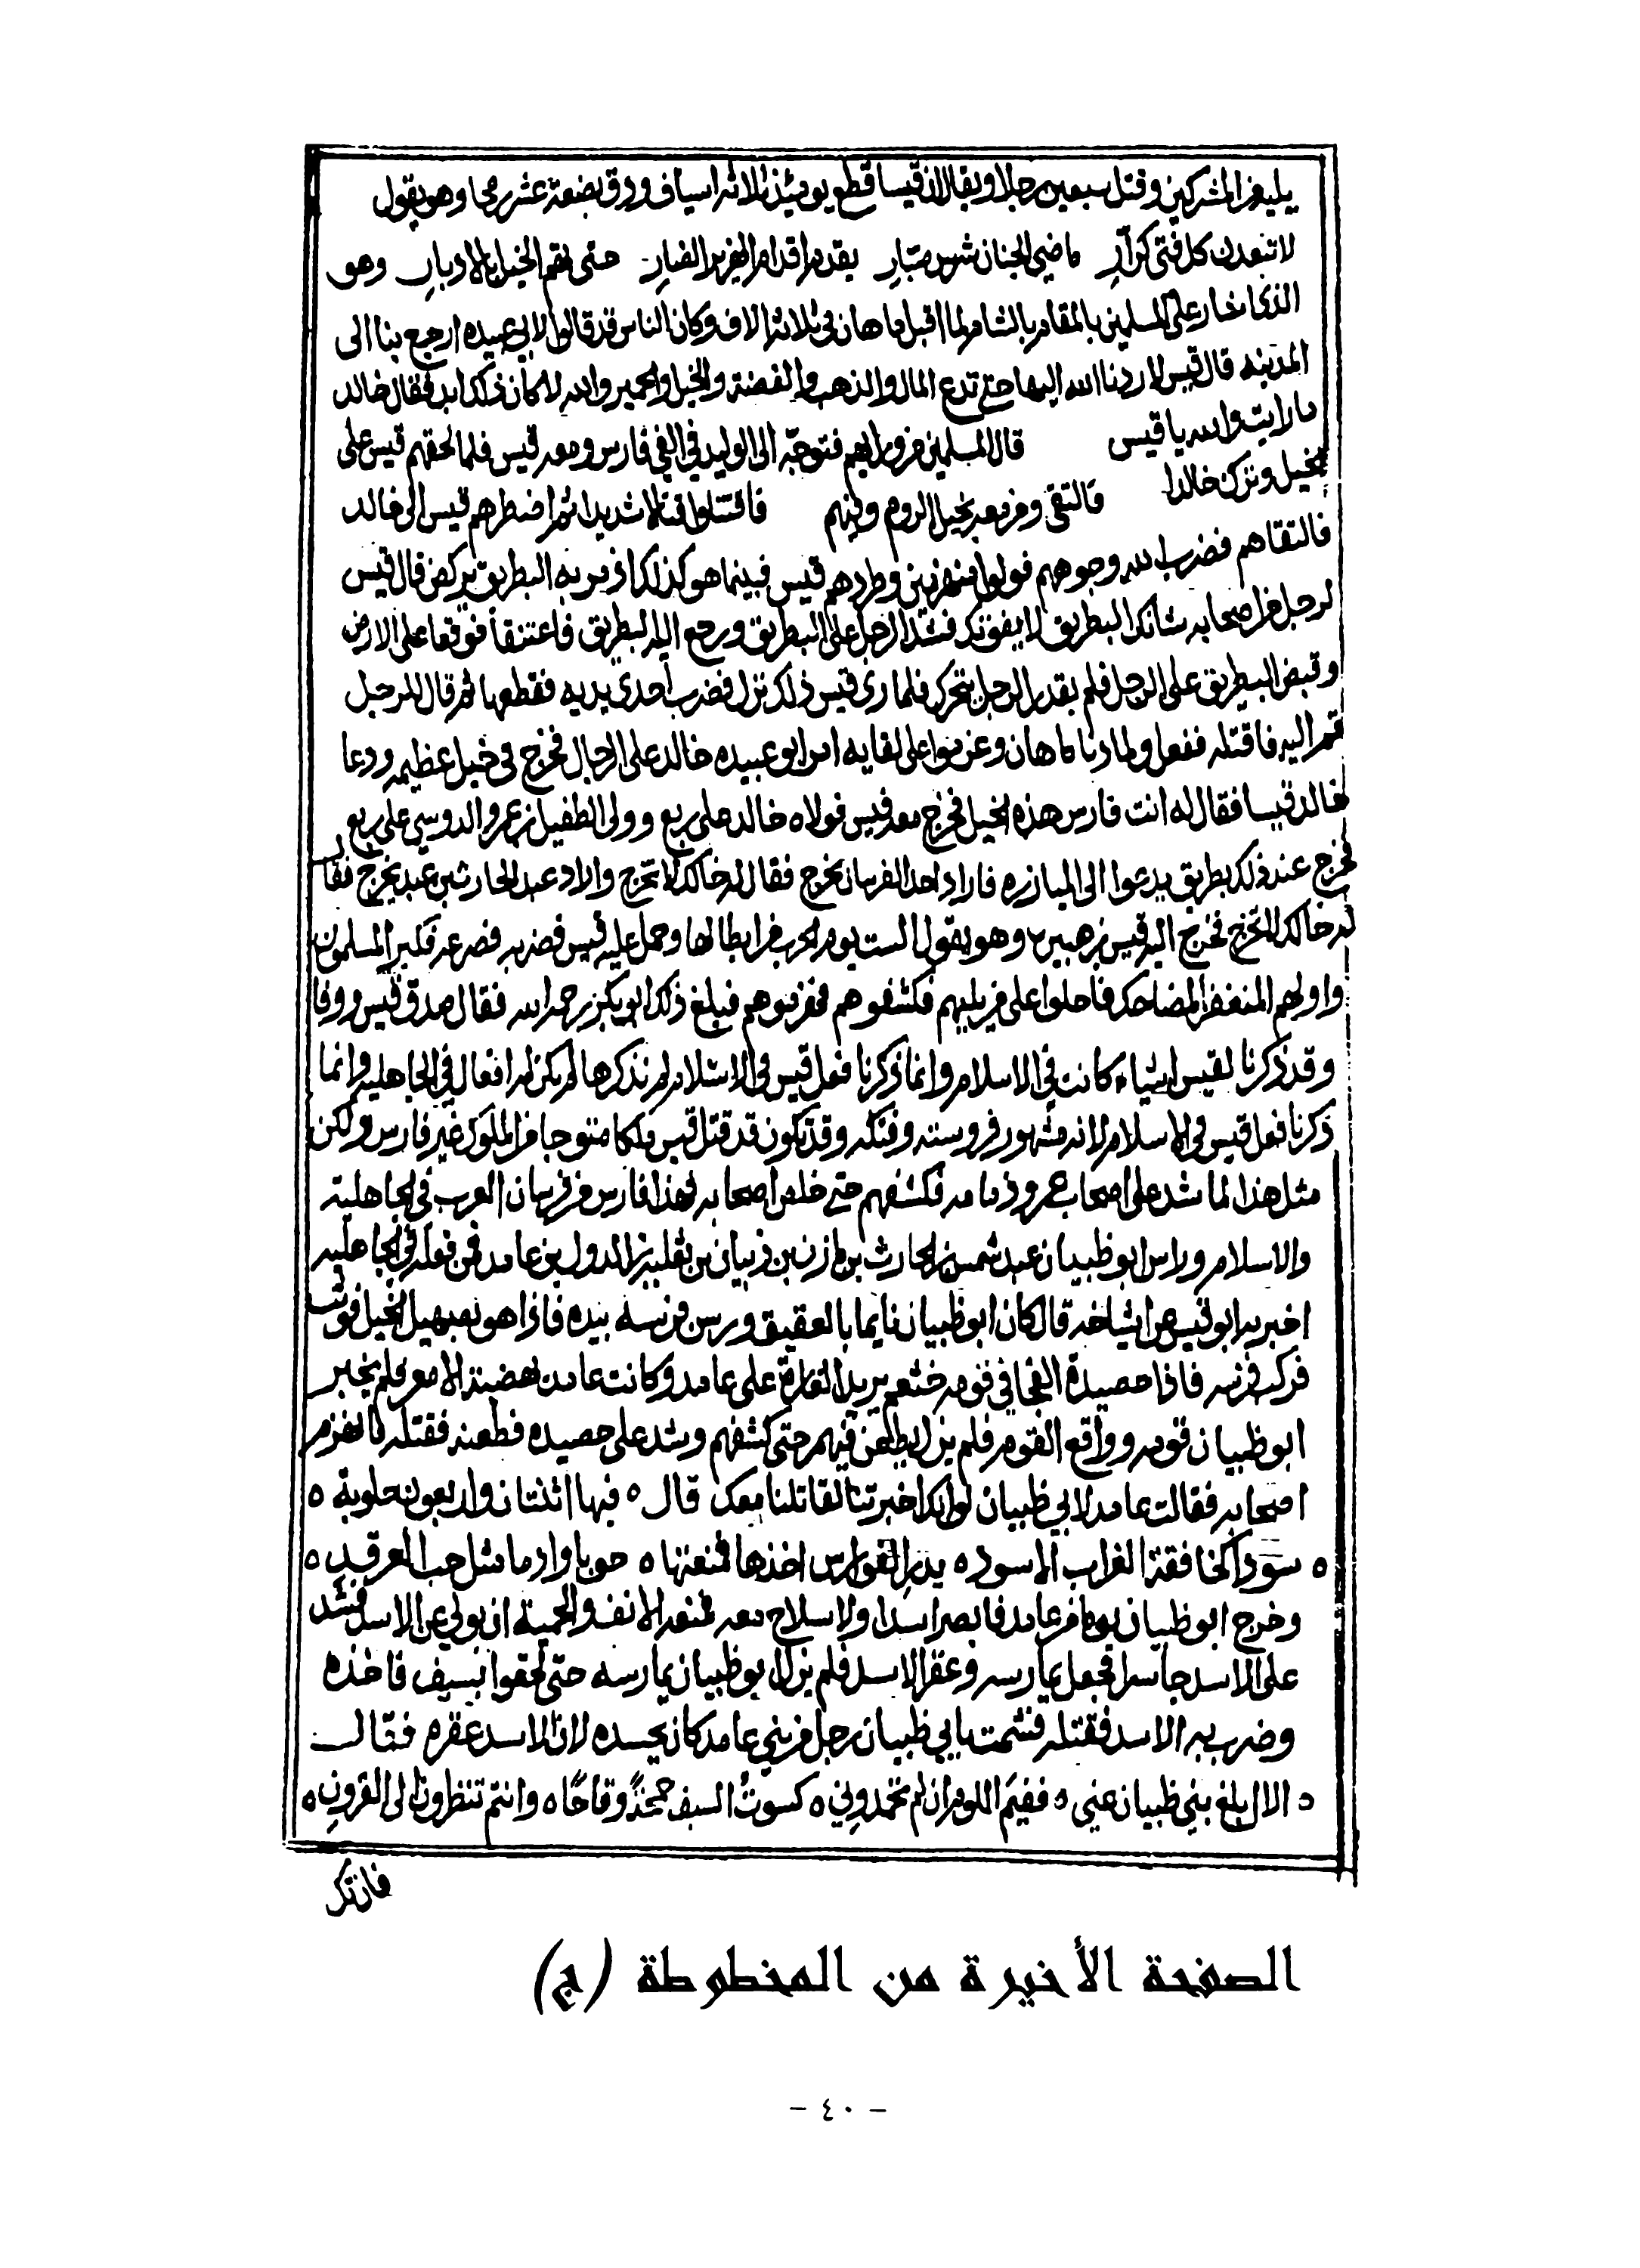 يليه من المشركين وقتل سبعين رجلا ويقال ان قيسا قطع يومئذ ثلاثه اسياف ودق بضعة عشر رمحا وهو يقول
لا تبعدن كل فتى كرار ماضي الجنان شرس صبار يقدم اقدام حتى تقم الخيل بالادبار وهو
الذي اشار على المسلمين بالمقام بالشام لما اقبل ماهان في ثلاثه الاف وكان الناس قد قالوا لابي عبيده ارجع بنا الى
المدينه قال قيس لا ردنا الله اليها حتى تدع المال والذهب والفضة والخيل والحمير والله لا كان ذلك ابدا فقال خالد
ما رايت والله يا قيس قال المسلمين من ورايهم فتوجه الى الوليد في الفي فارس ومعه قيس فلما لحقهم قيس على
الخيل وترك خالدا فالتقى ومن معه بخيل الروم وفيهم فاقتتلوا قتالا شديدا ثم اضطرهم قيس الى خالد
فالتقاهم فضرب الله وجوههم فولوا منهزمين وطردهم قيس فبينما هو كذلك اذ مر به البطريق يركض قال قيس
لرجل من اصحابه شانك البطريق لا يفوتك فشد الرجل على البطريق ورجع اليه البطريق فاعتنقا فوقعا على الارض
وقبض البطريق على الرجل فلم يقدر الرجل يتحرك فلما رى قيس ذلك نزل فضرب احدى يديه فقطعها ثم قال للرجل
قم اليه فاقتله ففعل ولما دنا ماهان وعزموا على لقايه امر ابو عبيده خالد على الرجال فخرج في خيل عظيمه ودعا
خالد قيسا فقال له انت فارس هذه الخيل فخرج معه قيس فولاه خالد على ربع وولى الطفيل بن عمرو الدوسي على ربع
فخرج عند ذلك بطريق يدعوا الى المبارزه فاراد احد الفرسان يخرج فقال له خالد لا تخرج واراد عبد الحارث بن عبد يخرج فقال
له خالد لا تخرج فخرج اليه قيس بن هبيره وهو يقول الست يوم الحرب من ابطالها وحمل عليه قيس فضربه فصرعه فكبر المسلمون
فاحملوا على من يليهم فكشفوهم فهزموهم فبلغ ذلك ابو بكر رحمه الله فقال صدق قيس ووفا
وقد ذكرنا لقيس اشياء كانت في الاسلام وانما ذكرنا فعل قيس في الاسلام لم نذكرها لم يكن له افعال في الجاهليه وانما
ذكرنا فعل قيس في الاسلام لانه مشهور فروسته وفتكه وقد يكون قد قتل قيس ملكا متوجا من الملوك غير فارس ولكن
مثل هذا لما شد على اصحاب عمرو فكشفهم حتى خلص اصحابه فهذا فارس من فرسان العرب في الجاهلية
والاسلام وراس ابو ظبيان عبد شمس بن الحارث بن مازن بن ذبيان بن ثعلبه بن الدول بن غامد فمن فعله في الجاهليه
اخبر به ابو قيس عن اشياخه قال كان ابو ظبيان نايما بالعقيق ورسن فرسه بيده فاذا هو بصهيل الخيل فوثب
فركب فرسه فاذا حصيدة في قومه خثعم يريد الغارة على غامد وكانت غامد فلم يخبر
ابو ظبيان قومه وواقع القوم فلم يزل يطعن فيهم حتى كشفهم وشد على حصيده فطعنه فقتله فانهزم
اصحابه فقالت غامد لابي ظبيان لو انك اخبرتنا لقاتلنا معك قال ٥ فيها اثنتان واربعون حلوبة ٥
٥ سودا كخافقة الغراب الاسود ٥ الفوارس اخذها فمنعتها ٥ حوبا وادما مثل حب الغرقد ٥
وخرج ابو ظبيان يوما من غامد فابصر اسدا ولا سلاح معه فمنعه الانف والحمية ان يولي عن الاسد فشد
على الاسد جاسرا فجعل يمارسه وعقر الاسد فلم يزل ابو ظبيان يمارسه حتى لحقوا بسيف فاخذه
وضرب به الاسد فقتله فشمت بابي ظبيان رجل من بني غامد كان يحسده لان الاسد عقره فقال
٥ الا ابلغ بني ظبيان عني ٥ ففيم اللوم ان لم تحمدوني ٥ كسوت السيف وقاحا ٥ وانتم تنظرون الى القرون ٥
فان تك
الصفحة الأخيرة من المخطوطة (ج)
- ٤٠ -